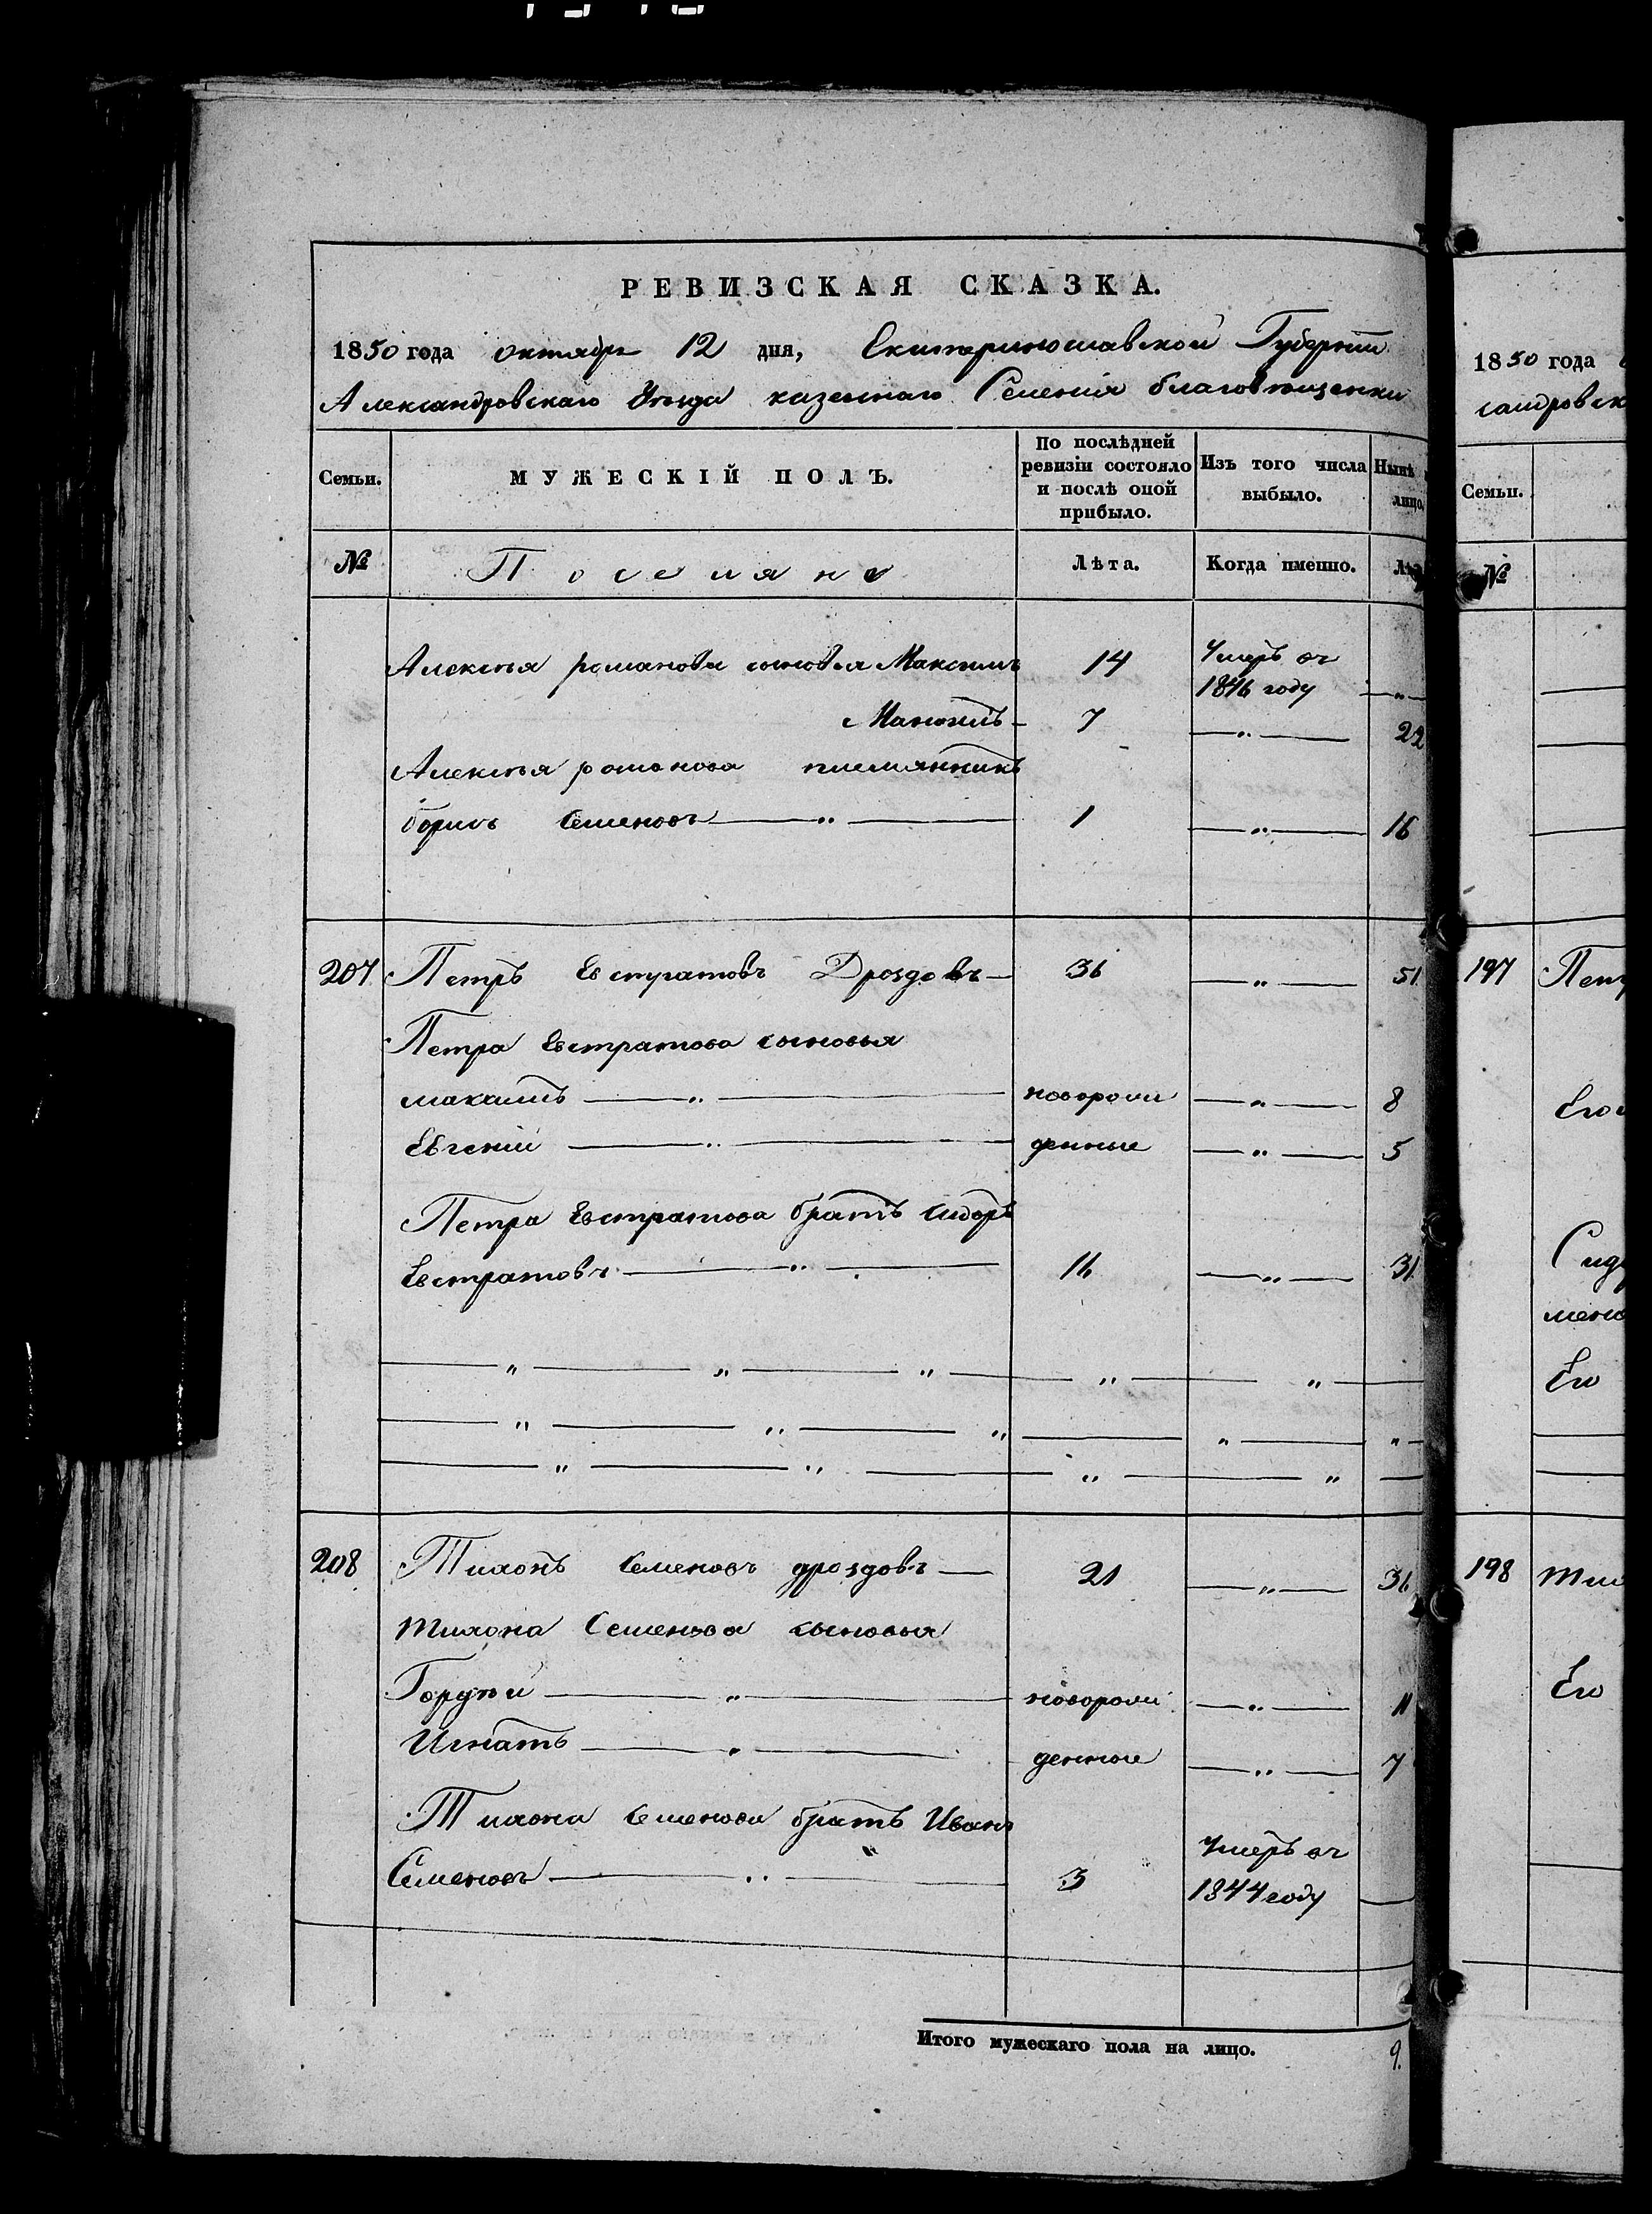 РЕВИЗСКАЯ СКАЗКА.
1850 года октября 12 дня, Екатеринославской Губернии
Александровскаго Уѣзда казеннаго Селенія благовѣщенки
Семьи. МУЖЕСКІЙ ПОЛЪ. По послѣдней ревизіи состояло и послѣ оной прибыло. Изъ того числа выбыло. Нынѣ лицо.
№ Поселяне Лѣта. Когда именно. Лѣ
Алексѣя романова сыновья Максимъ 14 Умеръ въ 1846 году — „ —
Мануилъ — 7 — „ — 22
Алексѣя романова племянникъ
борисъ Семеновъ — „ — 1 — „ — 16
207 Петръ Евстратовъ Дроздовъ — 36 — „ — 51
Петра Евстратова сыновья
максимъ — „ — новорож — „ — 8
Евгеній — „ — денные — „ — 5
Петра Евстратова братъ Сидоръ
Евстратовъ — „ — 16 — „ — 31
— „ — „ — „ — „ — „ —
— „ — „ — „ — „ — „ —
— „ — „ — „ — „ —
208 Тихонъ Семеновъ дроздовъ — 21 — „ — 36
тихона Семенова сыновья
Гордѣй — „ — новорож — „ — 11
Игнатъ — „ — денные — „ — 7
Тихона Семенова братъ Иванъ
Семеновъ — „ — 3 Умеръ въ 1844 году —
Итого мужескаго пола на лицо. 9.
1850 года
сандровск
Семьи.
№
197 Пет
Его
Сид
мено
Его
198 Тих
Его